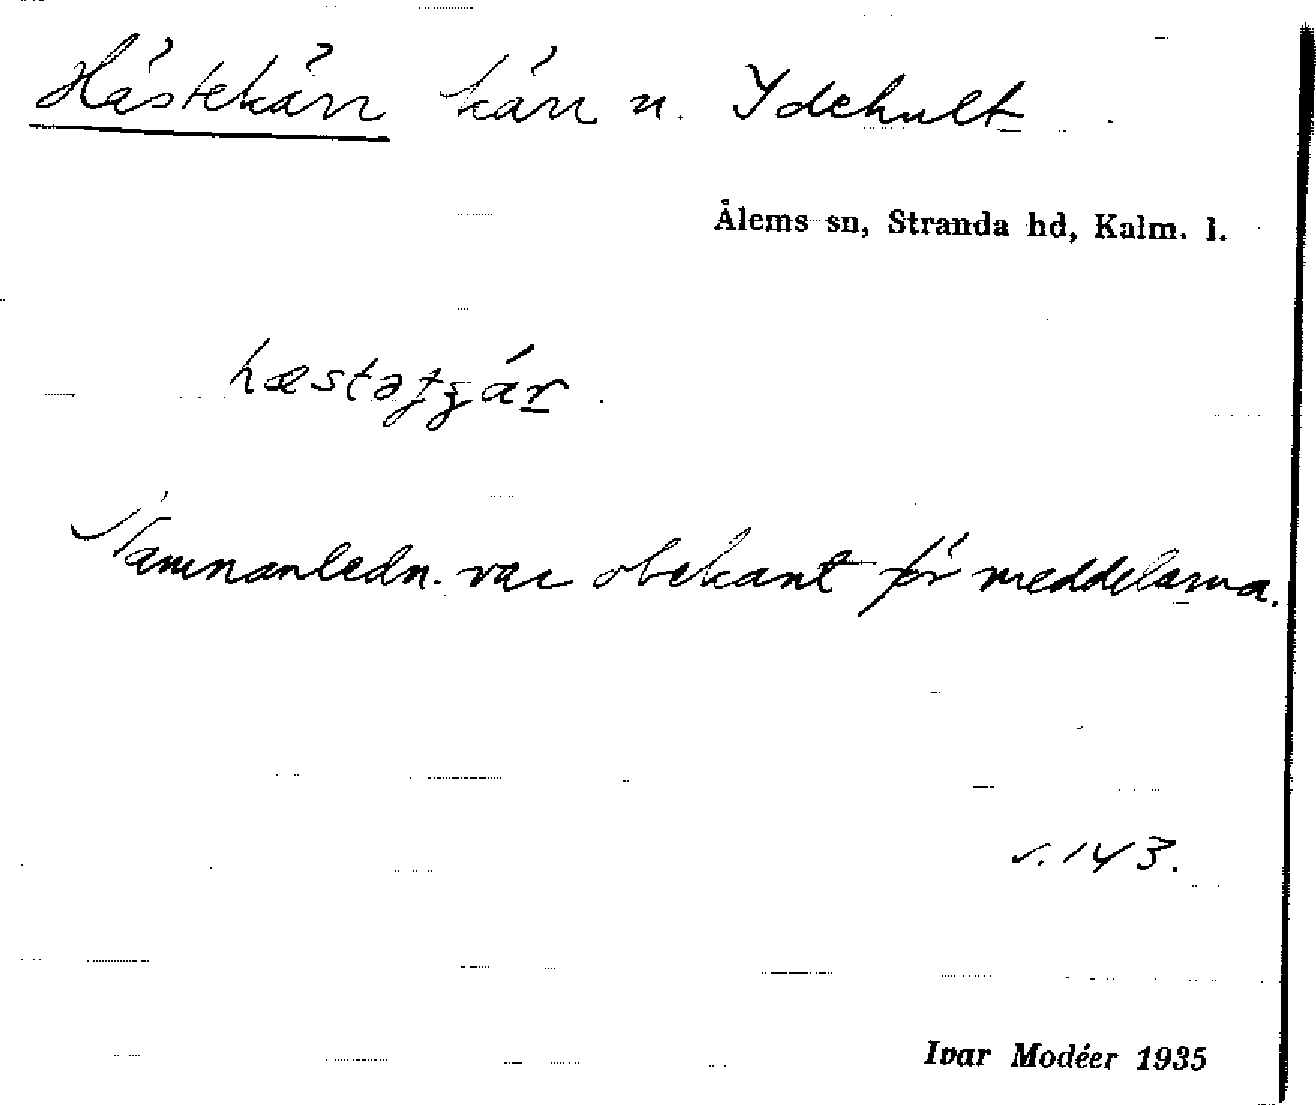 Hästekärr kärr n. Ydehult
Ålems sn, Stranda hd, Kalm. l.
Namnanledn. var obekant för meddelarna.
s. 143.
Ivar Modéer 1935